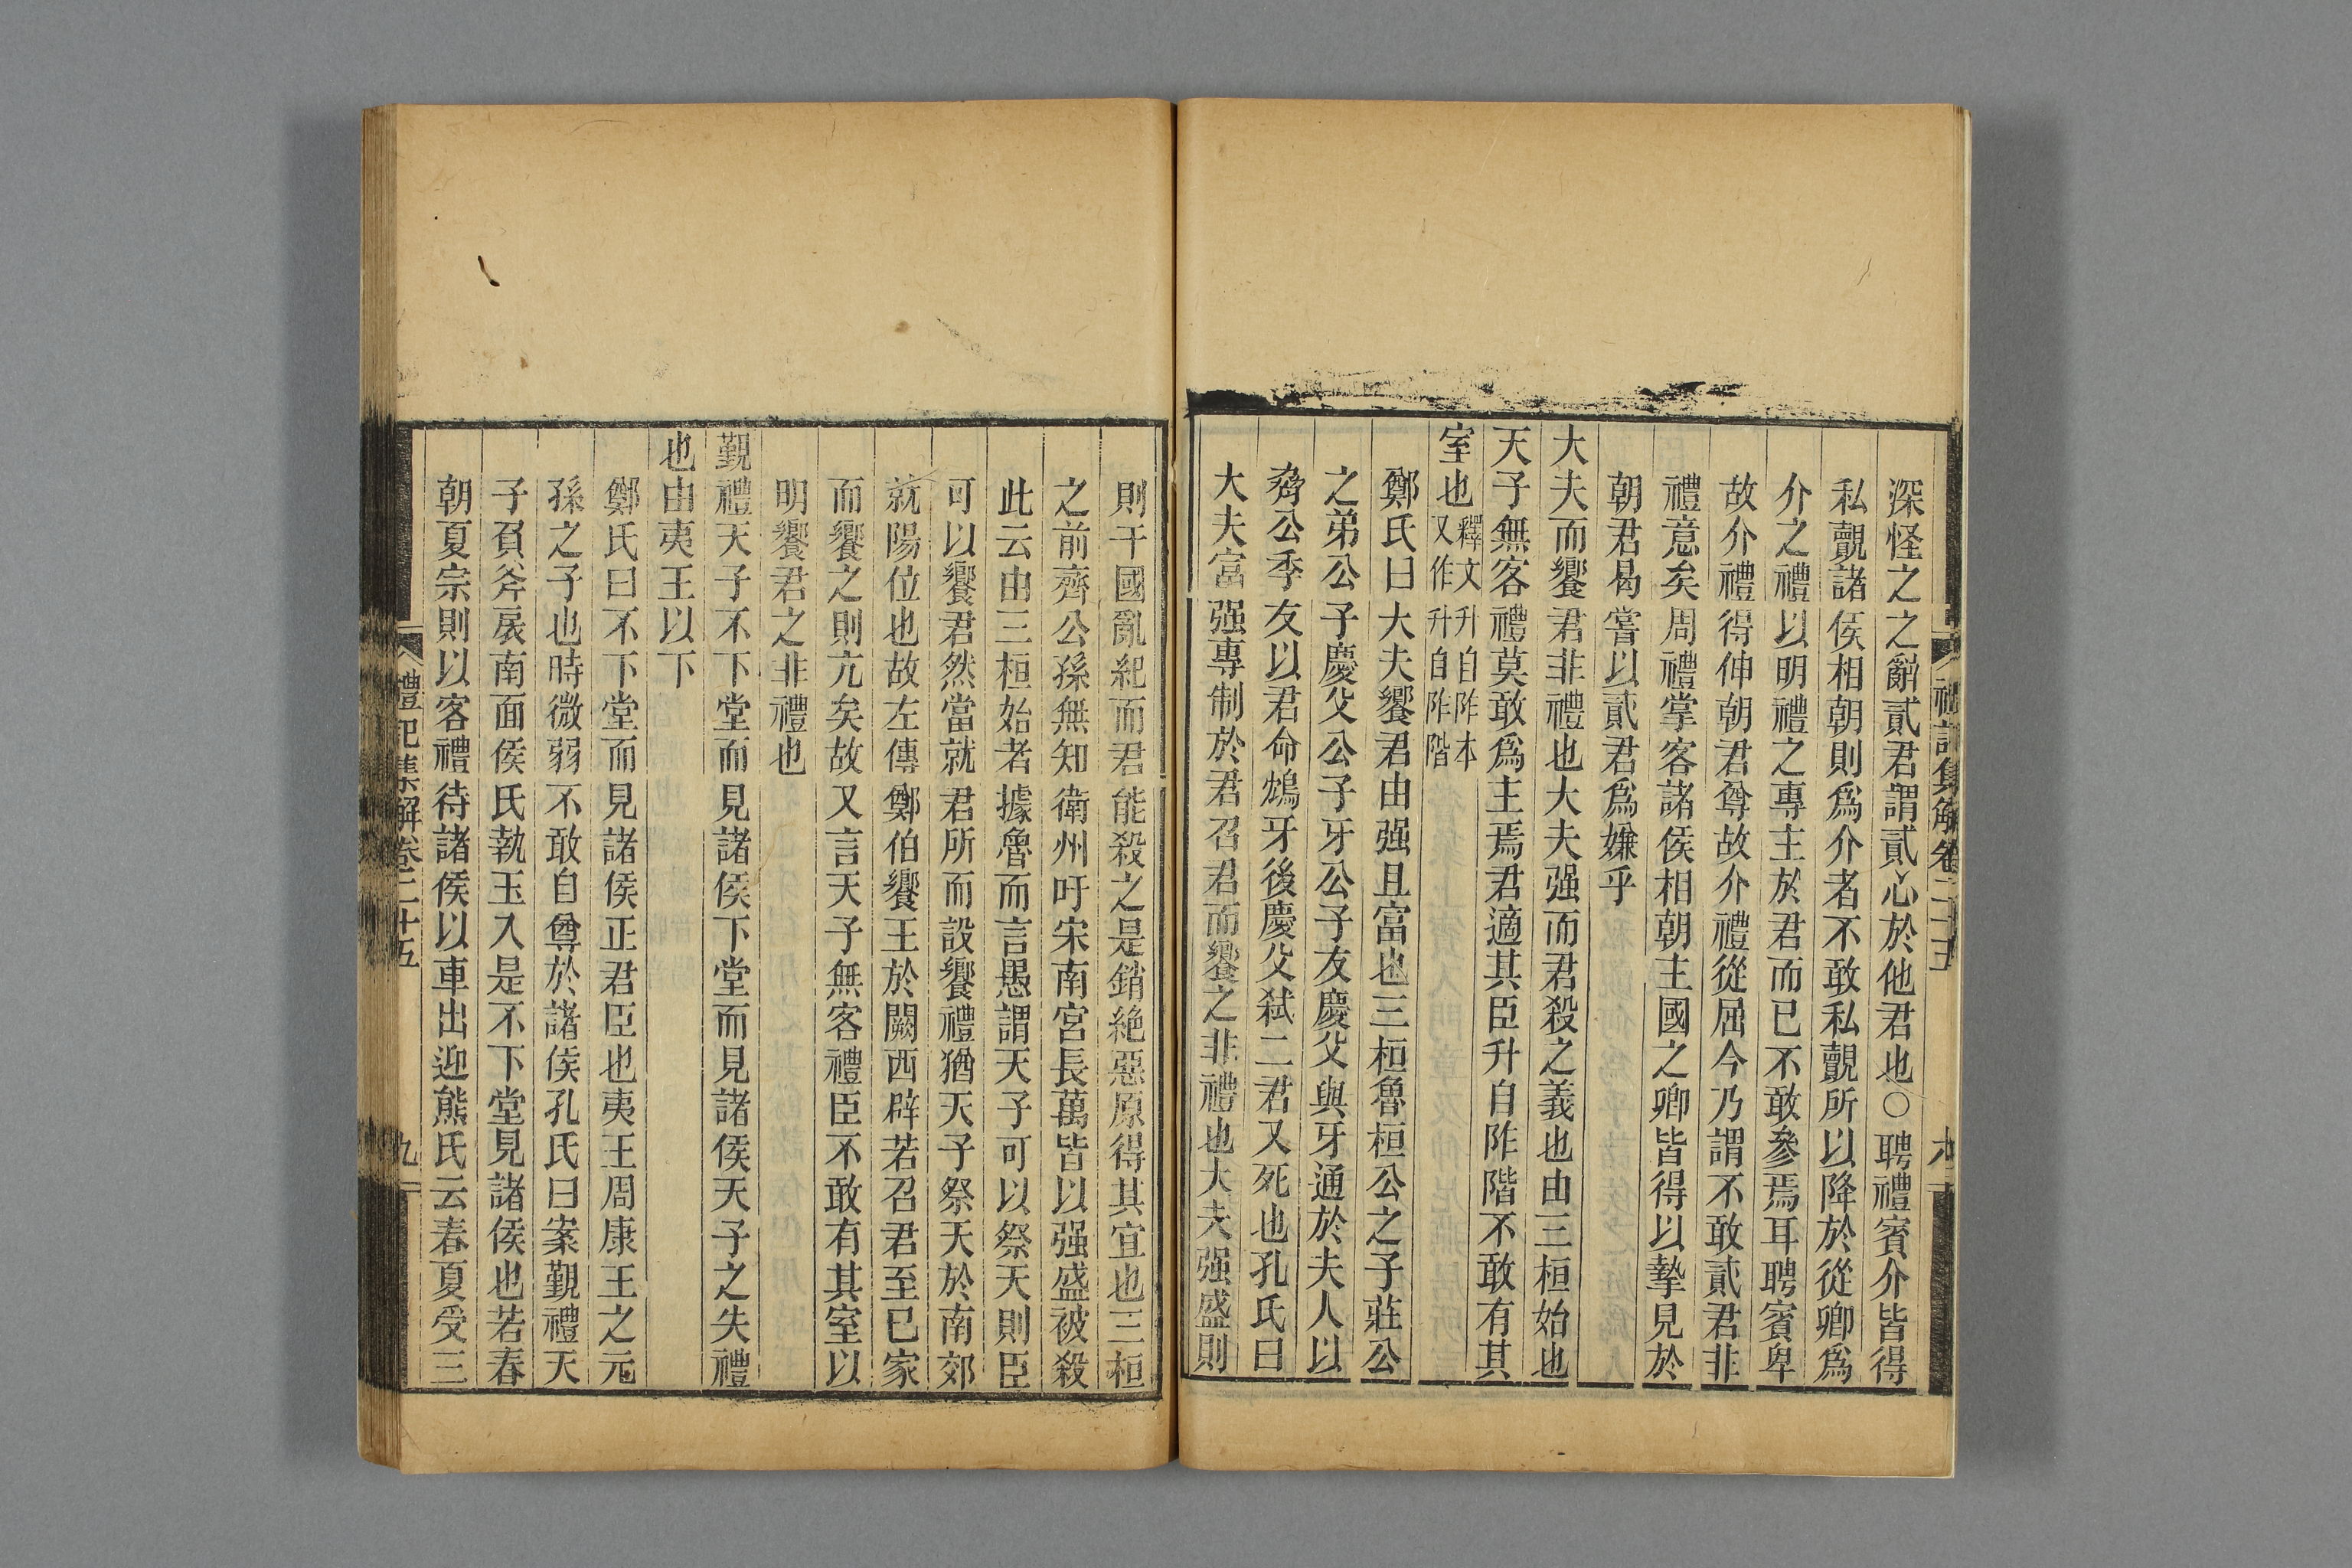 禮記集解卷二十五
深怪之之辭貳君謂貳心於他君也○聘禮賓介皆得
私覿諸侯相朝則爲介者不敢私覿所以降於從卿爲
介之禮以明禮之專主於君而已不敢參焉耳聘賓卑
故介禮得伸朝君尊故介禮從屈今乃謂不敢貳君非
禮意矣周禮掌客諸侯相朝主國之卿皆得以摯見於
朝君曷嘗以貳君爲嫌乎
大夫而饗君非禮也大夫强而君殺之義也由三桓始也
天子無客禮莫敢爲主焉君適其臣升自阼階不敢有其
室也釋文升自阼本又作升自阼階
鄭氏曰大夫饗君由强且富也三桓魯桓公之子莊公
之弟公子慶父公子牙公子友慶父與牙通於夫人以
脅公季友以君命鴆牙後慶父弑二君又死也孔氏曰
大夫富强專制於君召君而饗之非禮也大夫强盛則
則干國亂紀而君能殺之是銷絶惡原得其宜也三桓
之前齊公孫無知衛州吁宋南宮長萬皆以强盛被殺
此云由三桓始者據魯而言愚謂天子可以祭天則臣
可以饗君然當就君所而設饗禮猶天子祭天於南郊
就陽位也故左傳鄭伯饗王於闕西辟若召君至已家
而饗之則亢矣故又言天子無客禮臣不敢有其室以
明饗君之非禮也
覲禮天子不下堂而見諸侯下堂而見諸侯天子之失禮
也由夷王以下
鄭氏曰不下堂而見諸侯正君臣也夷王周康王之元
孫之子也時微弱不敢自尊於諸侯孔氏曰案覲禮天
子負斧扆南面侯氏執玉入是不下堂見諸侯也若春
朝夏宗則以客禮待諸侯以車出迎熊氏云春夏受三
禮記集解卷二十五
九